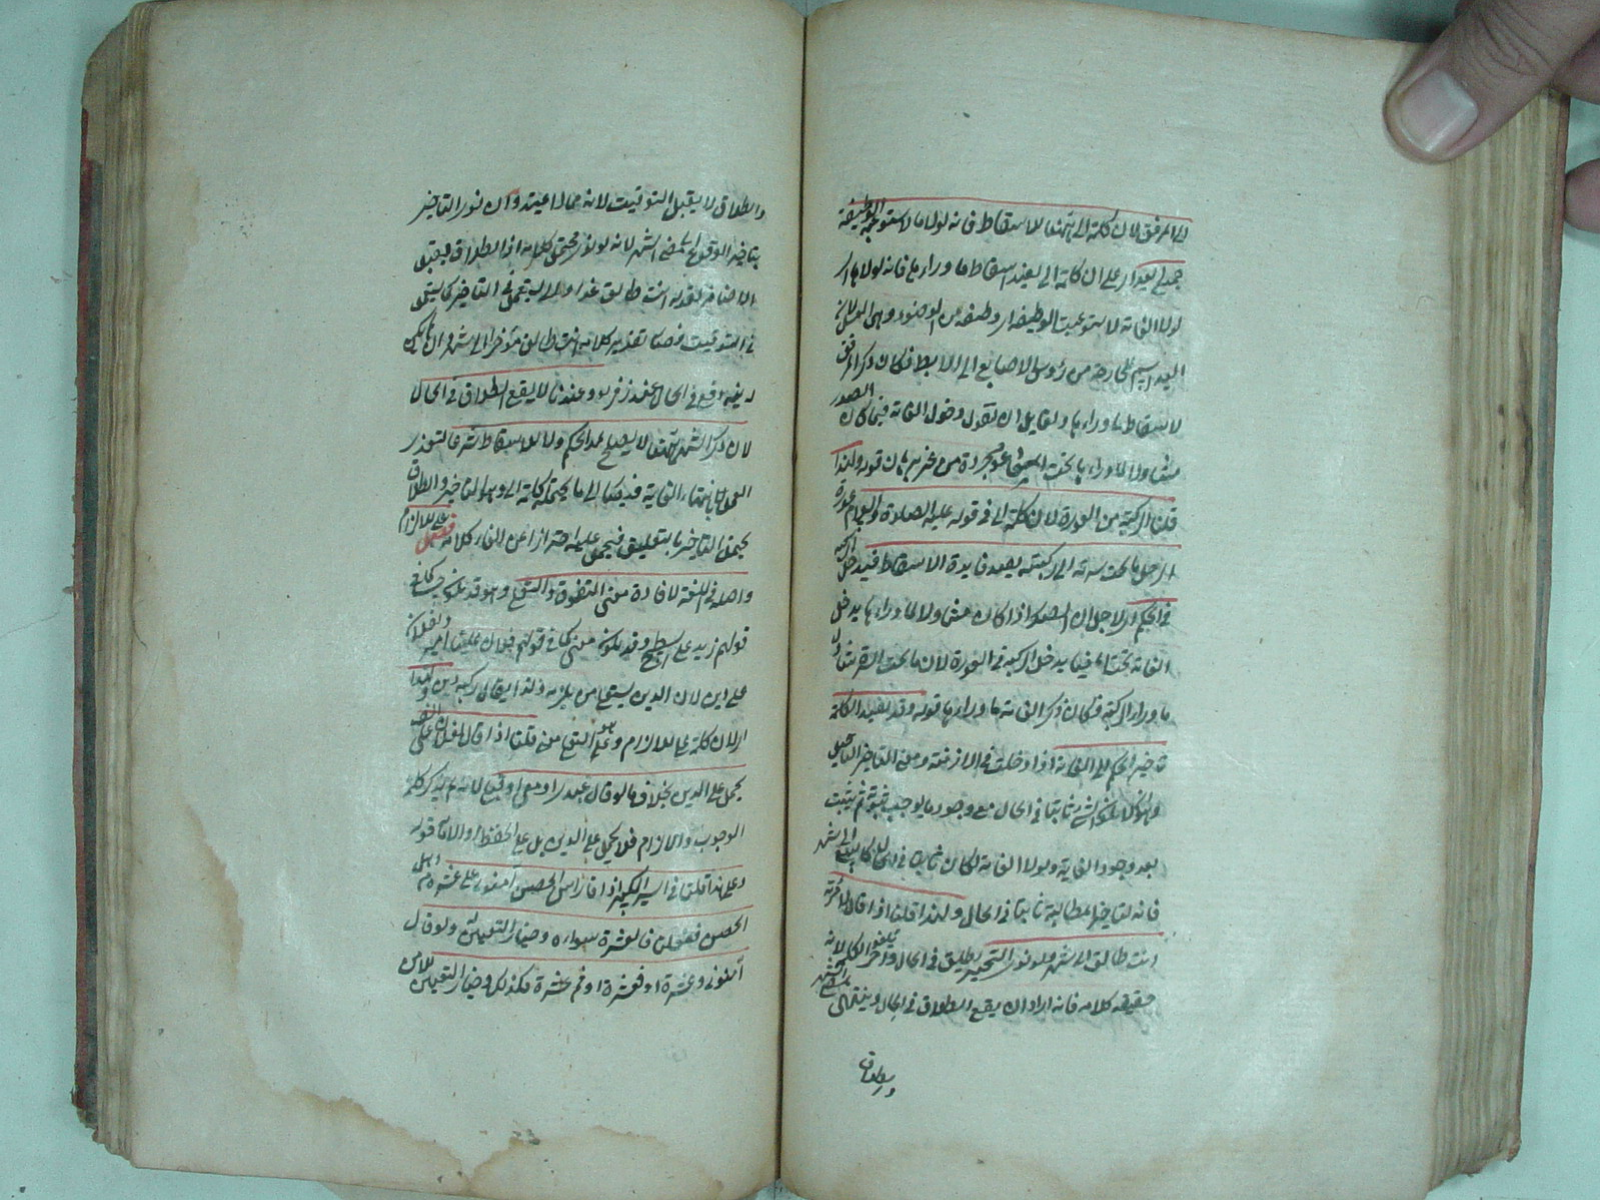 الى المرفق لان كلمة الى ههنا للاسقاط فانه لولاها لاستوعبت الوظيفة
جميع اليد ار على ان كلمة الى يفيد اسقاط ما وراءها فانه لولا
لولا الغاية لاستوعبت الوظيفة ار وظيفة من الوضوء وهي الغسل لان
اليد اسم للجارحة من رؤس الاصابع الى الابط فكان ذكر المرفق
لاسقاط ما وراءها ولقايل ان يقول دخول الغاية فيما كان الصدر
متناولا لما وراءها قوله ولهذا
قلنا الركبة من العورة لان كلمة الى في قوله عليه الصلاة والسلام عورة
الرجل ما تحت سرته الى ركبته يفيد فايدة الاسقاط فيدخل الركبة
في الحكم ار لاجل ان الصدر اذا كان متناولا لما وراءها يدخل
الغاية تحتها فيما يدخل الركبة في العورة لان ما تحت السرة يتناول
ما وراء الركبة فكان ذكر الغاية ما وراءها قوله وقد يفيد الكلمة
تاخير الحكم الى الغاية اذا دخلت في الازمنة ومعنى التاخير التاجيل
وهو ان لا يكون الشئ ثابتا في الحال مع وجود ما يوجب ثبوته ثم يثبت
بعد وجود الغاية ولولا الغاية لكان ثابتا في الحال كالبيع الى شهر
فانه لتاخير المطالبة ثابتا في الحال ولهذا قلنا اذا قال لامرته
انت طالق الى شهر فلو نوى التنجيز يطلق في الحال ويلغو آخر الكلام لانه
حقيقة كلامه فانه اراد ان يقع الطلاق في الحال وينتهي بمضي الشهر
والطلاق
والطلاق لا يقبل التوقيت لانه مما لا يمتد وان نوى التاخير
يتاخر الوقوع الى مضي الشهر لانه نوى محتمل كلامه اذ الطلاق يقبل
الاضافة كقوله انت طالق غدا والى يستعمل في التاخير كما يستعمل
في التوقيت فصار تقدير كلامه انت طالق مؤخرا الى شهر وان لم يكن
له نية وقع في الحال عند زفر وعندنا لا يقع الطلاق في الحال
لان ذكر الشهر ههنا لا يصلح لمد الحكم ولا للاسقاط شرعا لتعذر
العمل بانتهاء الغاية فيحمل الى ما يحتمله كلمة الى وهو التاخير والطلاق
يحتمل التاخير بالتعليق فيحمل عليه احترازا عن الغاء كلامه فصل على للالزام
واصله في اللغة لافادة معنى التفوق والتعلي وهو قد يكون حسا كما في
قولهم زيد على السطح وقد يكون معنى كما في قولهم فلان علينا امير ولفلان
علي دين لان الدين يستعلي من يلزمه ولذا يقال ركبه دين ولهذا
ار لان كلمة على للالزام وهو التعلي معنى قلنا اذا قال لفلان علي الف
يحمل على الدين بخلاف ما لو قال عندي او معي او قبلي لانه لم يذكر كلمة
الوجوب والالزام فلا يحمل على الدين بل على الحفظ او الامانة قوله
وعلى هذا قلنا في السير الكبير اذا قال راس الحصن آمنوني على عشرة من اهل
الحصن ففعلنا فالعشرة سواه وخيار التعيين له ولو قال
آمنوني وعشرة او فعشرة او ثم عشرة فكذلك وخيار التعيين للآمن